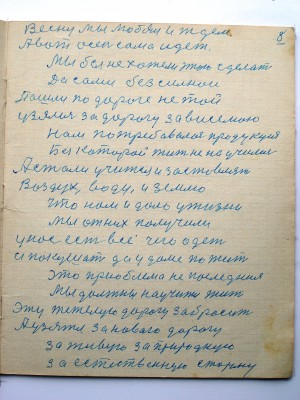 8
Весну мы любям и ждем
А вот осен сама идет.
Мы бы не хотели этого сделат
Да сами безсилной
Пошли по дороге не той
узялис за дорогу зависемою
Нам потребовалас продукция
Без которой жит не научилис
Астали учится и заставлят
Воздух, воду, и землю
что нам и дало у жизни
Мы от них получили
у нас ест всё чего одет
и покушат да у доме пожит
Это приоблема не последния
Мы должны научится жит
Эту тежелую дорогу забросит
А узятся за новаю дорогу
за живую за природную
за естиственную сторону